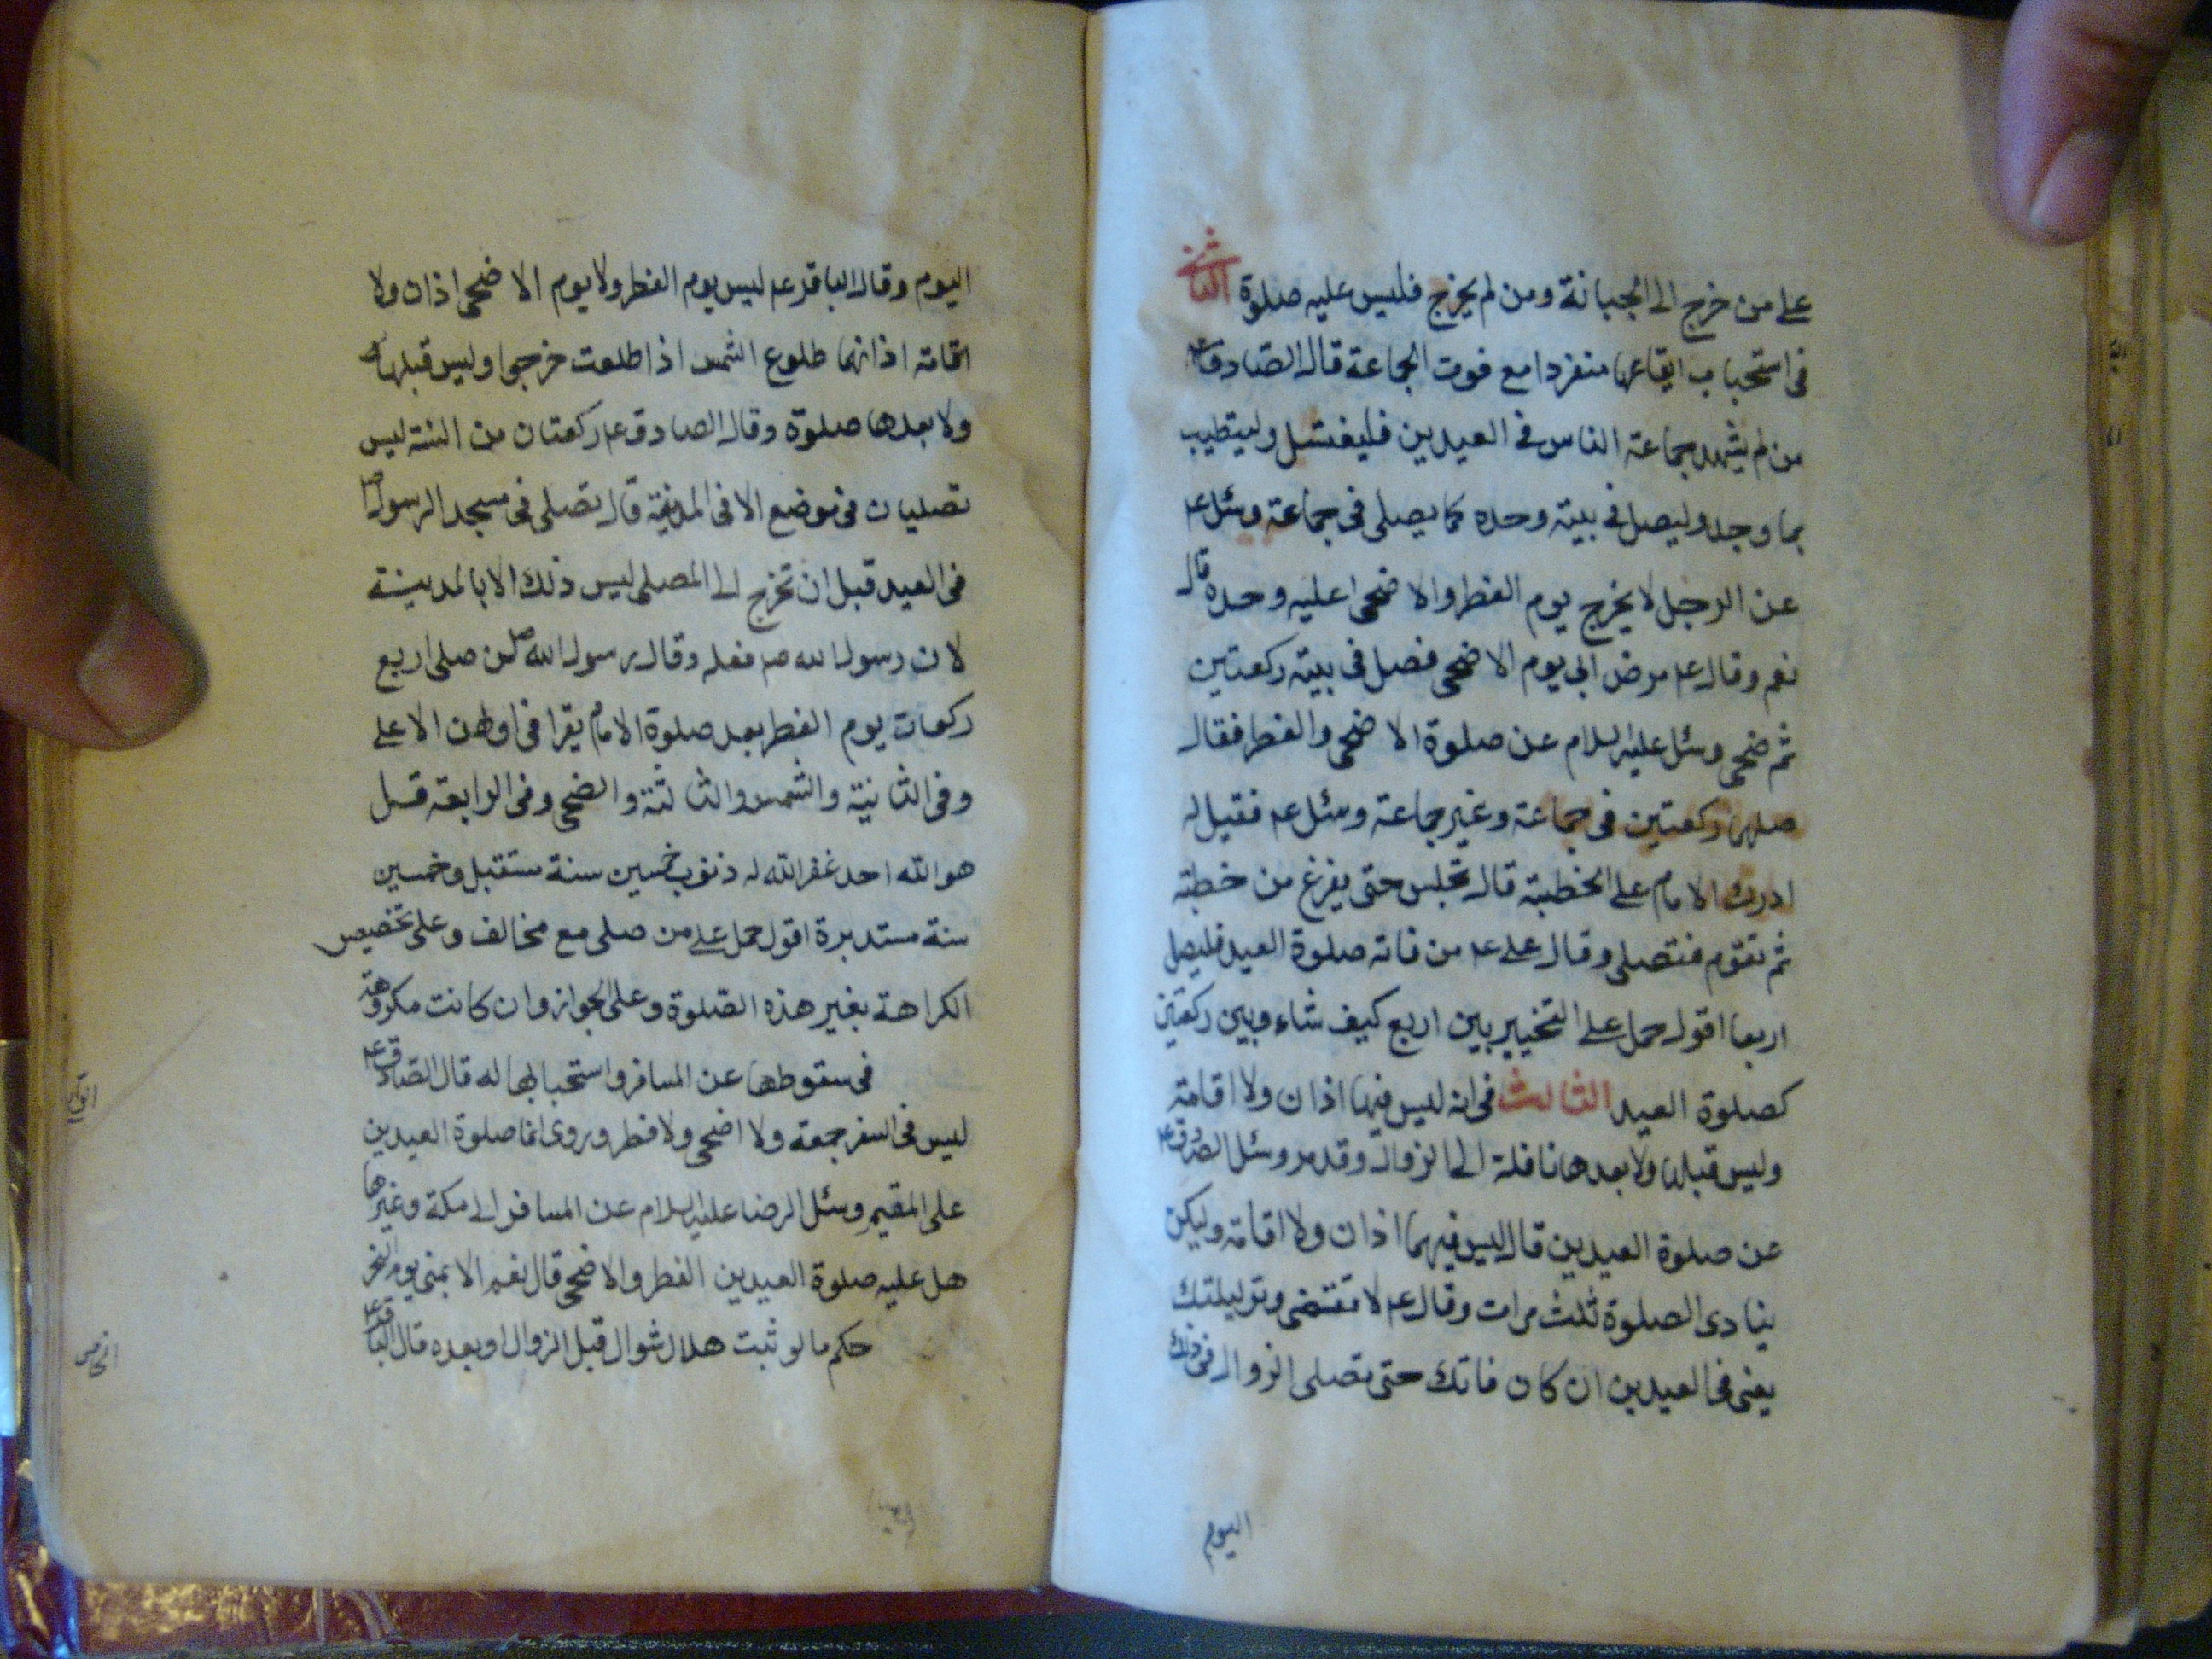 على من خرج الى الجبانة ومن لم يخرج فليس عليه صلوة الثانى
فى استحباب ايقاعها منفردا مع فوت الجماعة قال الصادق ع
من لم يشهد جماعة الناس فى العيدين فليغتسل وليتطيب
بما وجد وليصل فى بيته وحده كما يصلى فى جماعة وسئل ع
عن الرجل لا يخرج يوم الفطر والاضحى اعليه وحده قال
نعم وقال ع مرض ابى يوم الاضحى فصلى فى بيته ركعتين
ثم ضحى وسئل عليه السلام عن صلوة الاضحى والفطر فقال
صلهما ركعتين فى جماعة وغير جماعة وسئل ع فقيل له
ادرك الامام على الخطبة قال تجلس حتى يفرغ من خطبته
ثم تقوم فتصلى وقال على ع من فاته صلوة العيد فليصل
اربعا اقول حمل على التخيير بين اربع كيف شاء وبين ركعتين
كصلوة العيد الثالث فى انه ليس فيها اذان ولا اقامة
وليس قبلها ولا بعدها نافلة الى الزوال وقد مر وسئل الصادق ع
عن صلوة العيدين قال ليس فيهما اذان ولا اقامة وليكن
ينادى الصلوة ثلث مرات وقال ع لا تقتضى وتر ليلتك
يعنى فى العيدين ان كان فاتك حتى تصلى الزوال فى ذلك
اليوم
اليوم وقال الباقر ع ليس يوم الفطر ولا يوم الاضحى اذان ولا
اقامة اذانهما طلوع الشمس اذا طلعت خرجوا وليس قبلهما
ولا بعدها صلوة وقال الصادق ع ركعتان من السنة ليس
تصليان فى موضع الا فى المدينة قال تصلى فى مسجد الرسول ص
فى العيد قبل ان تخرج الى المصلى ليس ذلك الا بالمدينة
لان رسول الله ص فعله وقال رسول الله ص من صلى اربع
ركعات يوم الفطر بعد صلوة الامام يقرا فى اولهن الاعلى
وفى الثانية والشمس والثالثة والضحى وفى الرابعة قل
هو الله احد غفر الله له ذنوب خمسين سنة مستقبل وخمسين
سنة مستدبرة اقول حمل على من صلى مع مخالف وعلى تخصيص
الكراهة بغير هذه الصلوة وعلى الجواز وان كانت مكروهة
فى سقوطها عن المسافر واستحبابها له قال الصادق ع
ليس فى السفر جمعة ولا اضحى ولا فطر وروى انما صلوة العيدين
على المقيم وسئل الرضا عليه السلام عن المسافر الى مكة وغيرها
هل عليه صلوة العيدين الفطر والاضحى قال نعم الا بمنى يوم النحر
حكم ما لو ثبت هلال شوال قبل الزوال او بعده قال الباقر ع
الرابع
الخامس